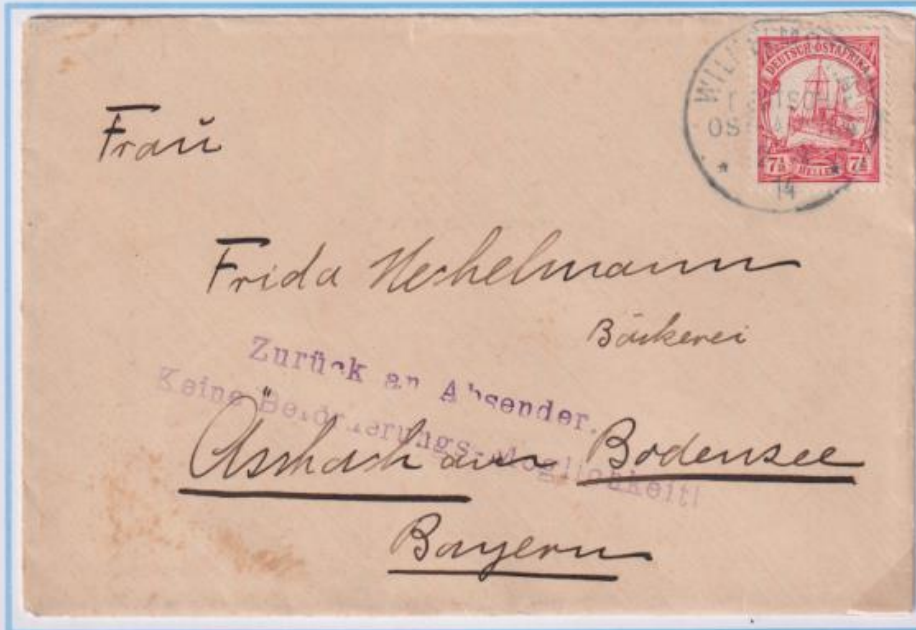 DEUTSCH-OSTAFRIKA
7½ HELLER 7½
14
Frau
Frida Hechelmann
Bäckerei
Zurück an Absender.
Keine Beförderungs-Möglichkeit!
Äschach am Bodensee
Bayern